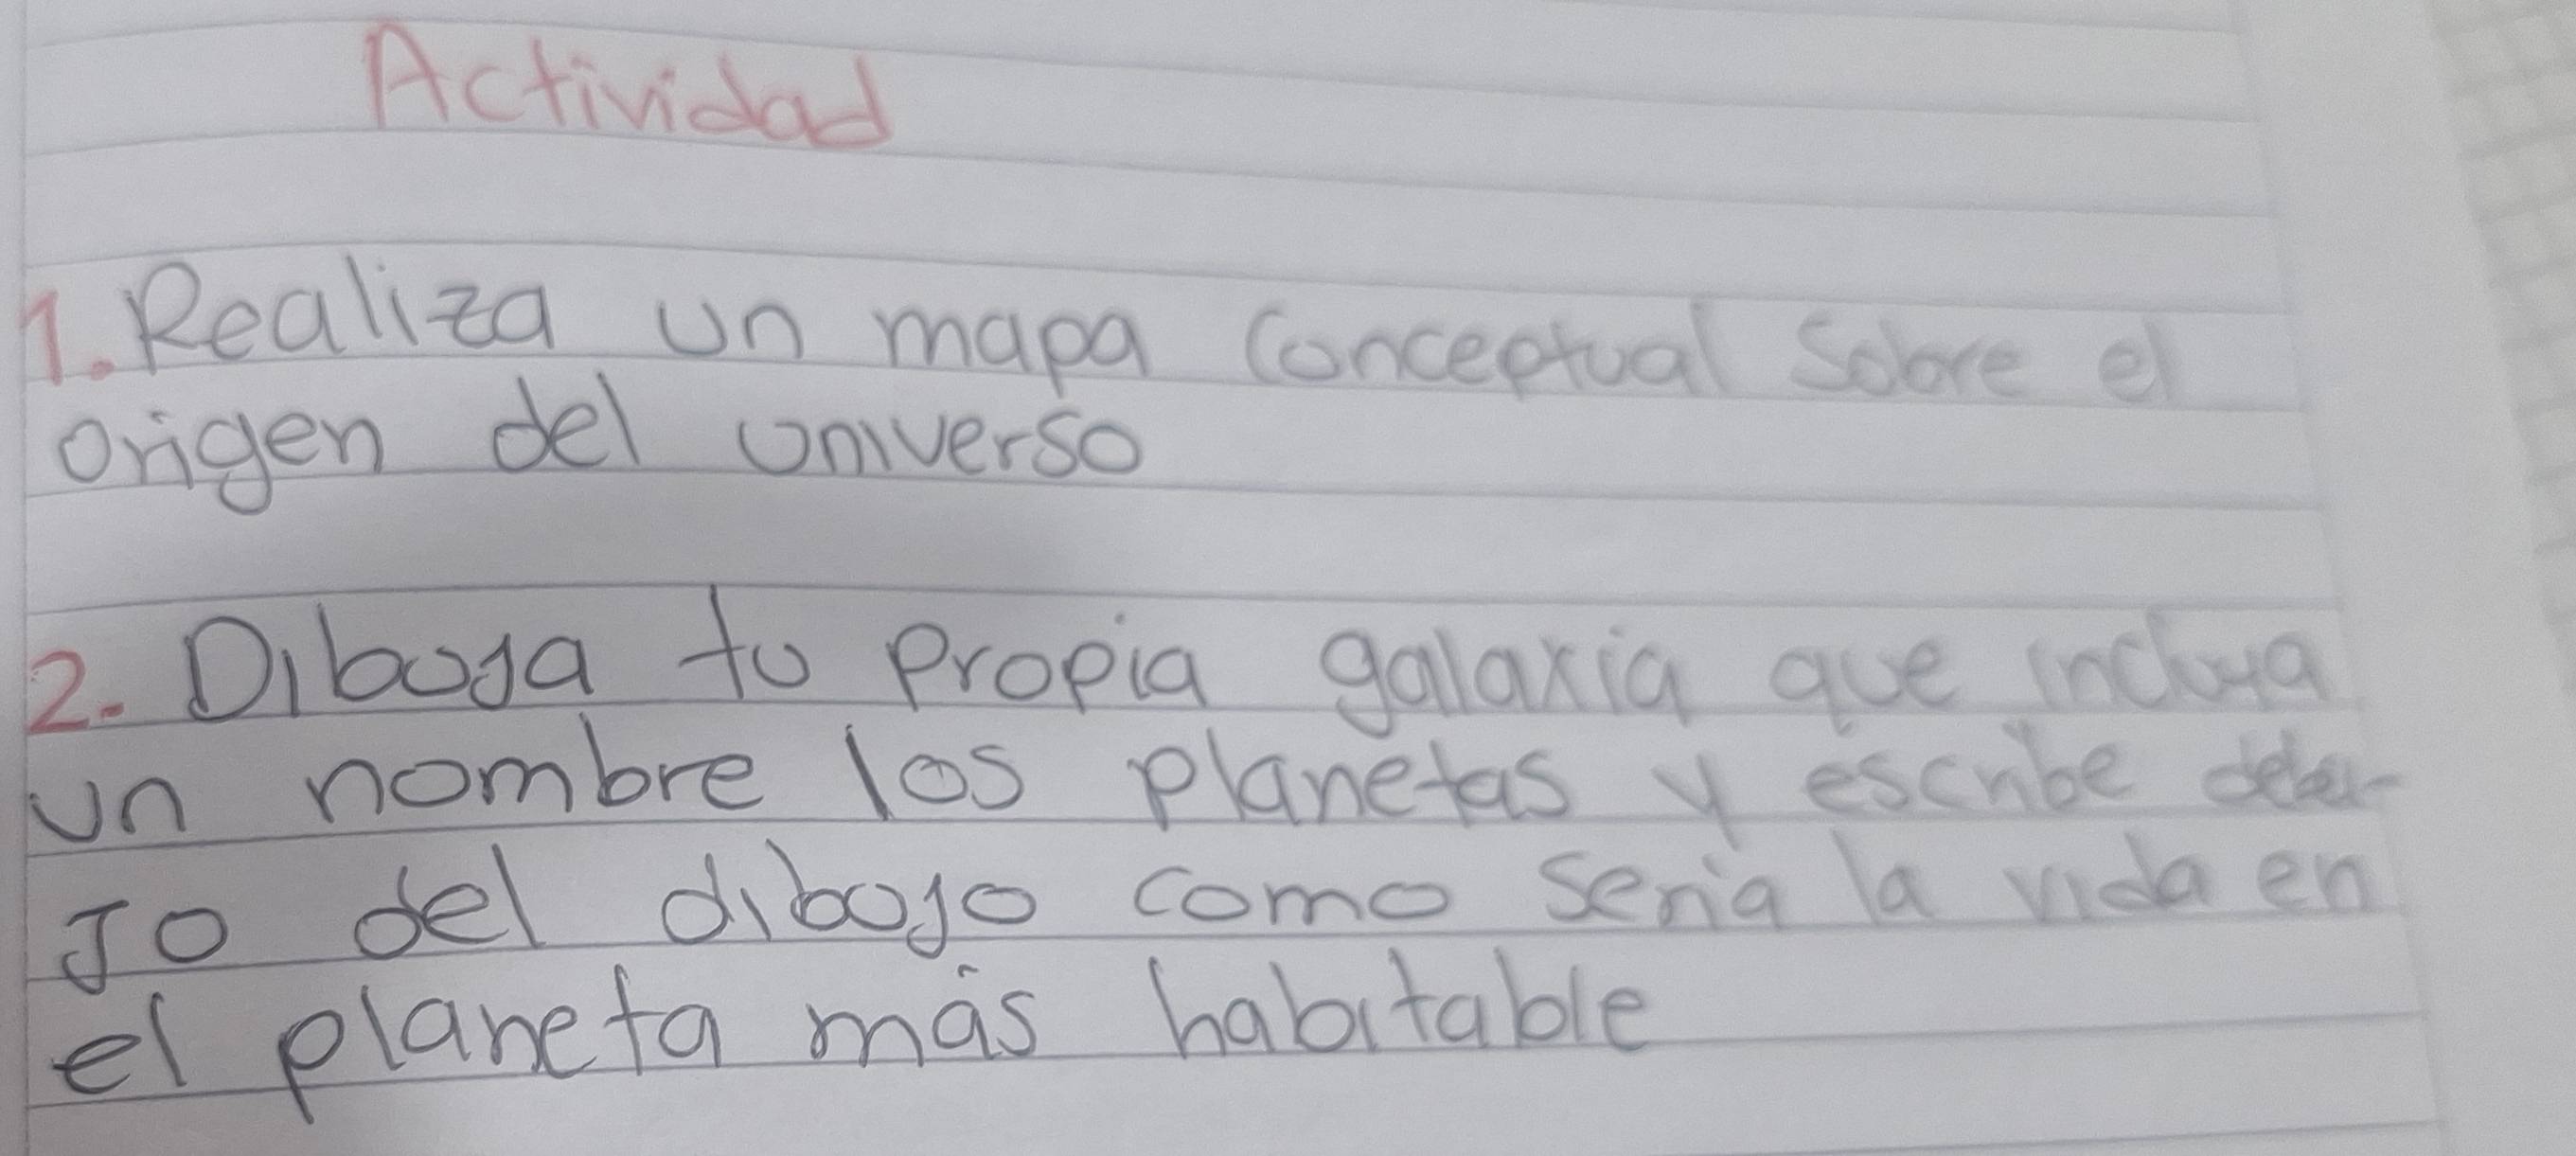 Actividad
1. Realiza un mapa Conceptual Sobre el
origen del universo
2. Dibuja tu propia galaxia que incluya
un nombre los planetas y escribe
Jo del dibujo como sería la vida en
el planeta más habitable